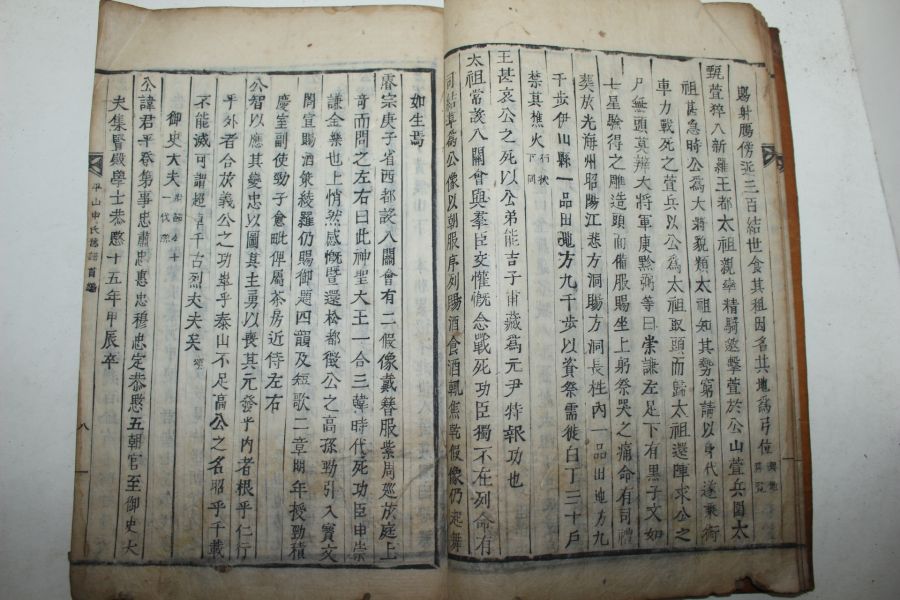 賜射賜傍近三百結世食其租因名其地爲弓位
甄萱猝入新羅王都太祖親率精騎邀擊萱於公山萱兵圍太
祖甚急時公爲大將貌類太祖知其勢窮請以身代遂乘御
車力戰死之萱兵以公爲太祖取頭而歸太祖還陣求公之
尸無頭莫辨大將軍庾黔弼等曰崇謙左足下有黑子文如
七星驗得之雕造頭面備服賜坐上躬祭哭之痛命有司禮
葬於光海州昭陽江悲方洞賜方洞長牲內一品田地方九
千步伊山縣一品田地方九千步以資祭需徙白丁三十戶
禁其樵火 行狀
王甚哀公之死以公弟能吉子甫藏爲元尹特報功也
太祖常設八關會與羣臣交懽慨念戰死功臣獨不在列命有
司結草爲公像以朝服序列賜酒食酒輒焦乾假像仍起舞
如生焉
睿宗庚子省西都設八關會有二假像戴簪服紫周巡於庭上
奇而問之左右曰此神聖大王一合三韓時代死功臣申崇
謙金樂也上悄然感慨曁還松都徵公之高孫勁引入寶文
閣宣賜酒衆綾羅仍賜御題四韻及短歌二章明年授勁積
慶室副使勁子愈毗俾屬茶房近侍左右
公智以應其變忠以圖其主勇以喪其元發乎內者根乎仁行
乎外者合於義公之功崋乎泰山不足高公之名昭乎千載
不能滅可謂超乎千古烈丈夫矣
御史大夫
公諱君平登第事忠肅忠惠忠穆忠定恭愍五朝官至御史大
夫集賢殿學士恭愍十五年甲辰卒
平山申氏舊譜首編
八